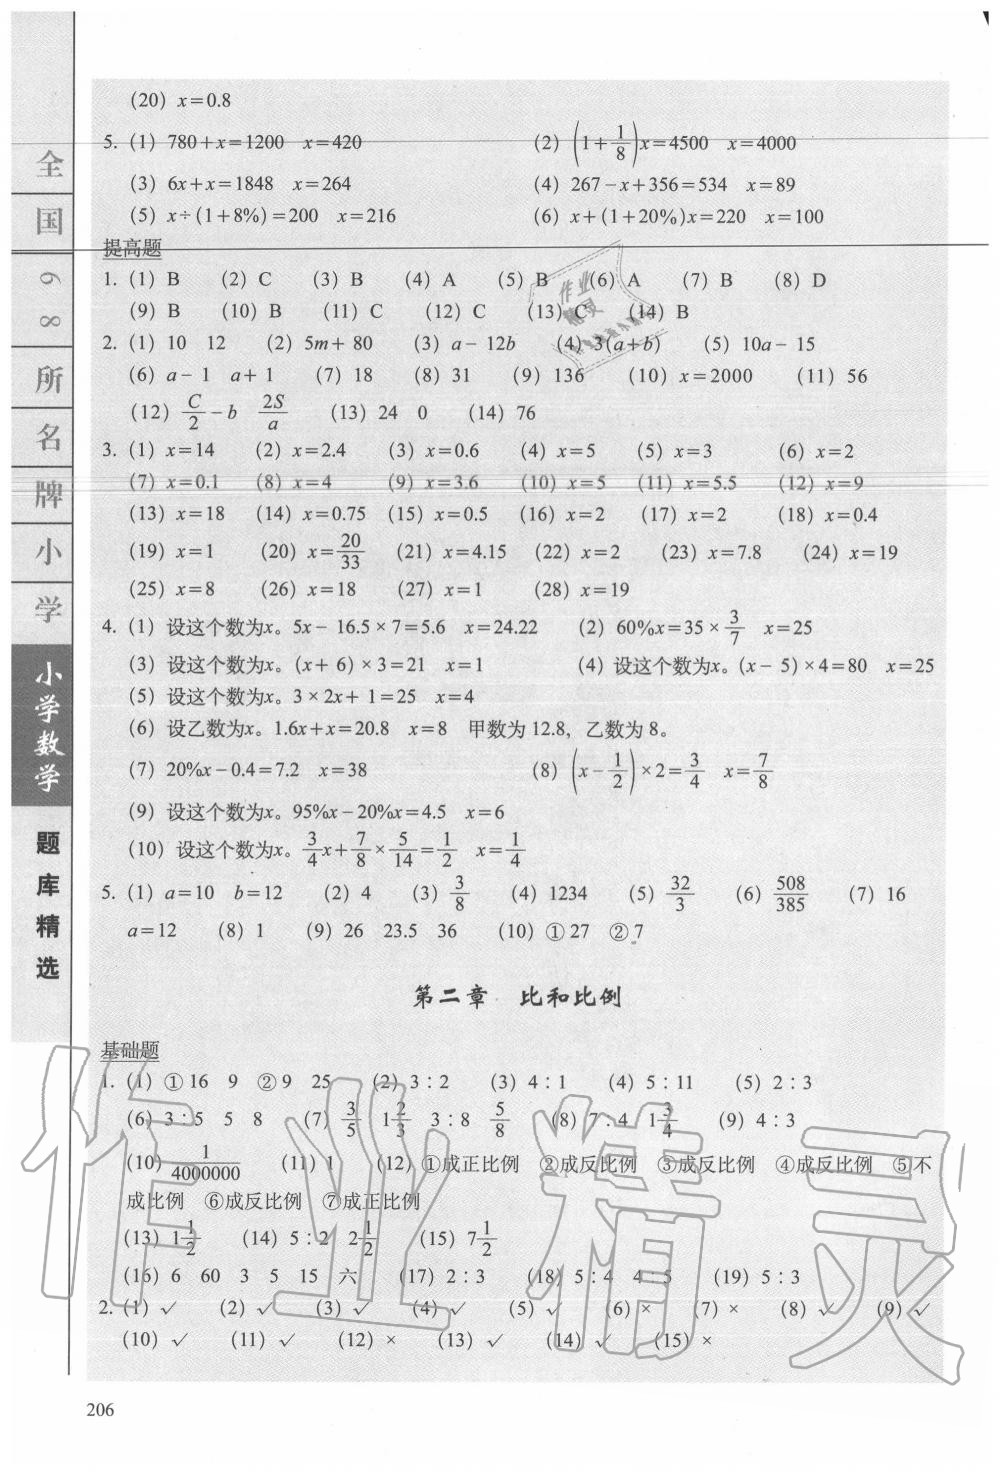 (20) x=0.8
5. (1) 780+x=1200 x=420 (2) (1+1/8)x=4500 x=4000
(3) 6x+x=1848 x=264 (4) 267-x+356=534 x=89
(5) x÷(1+8%)=200 x=216 (6) x+(1+20%)x=220 x=100
提高题
1. (1) B (2) C (3) B (4) A (5) B (6) A (7) B (8) D
(9) B (10) B (11) C (12) C (13) C (14) B
2. (1) 10 12 (2) 5m+80 (3) a-12b (4) 3(a+b) (5) 10a-15
(6) a-1 a+1 (7) 18 (8) 31 (9) 136 (10) x=2000 (11) 56
(12) C/2-b 2S/a (13) 24 0 (14) 76
3. (1) x=14 (2) x=2.4 (3) x=0.6 (4) x=5 (5) x=3 (6) x=2
(7) x=0.1 (8) x=4 (9) x=3.6 (10) x=5 (11) x=5.5 (12) x=9
(13) x=18 (14) x=0.75 (15) x=0.5 (16) x=2 (17) x=2 (18) x=0.4
(19) x=1 (20) x=20/33 (21) x=4.15 (22) x=2 (23) x=7.8 (24) x=19
(25) x=8 (26) x=18 (27) x=1 (28) x=19
4. (1) 设这个数为x。5x-16.5×7=5.6 x=24.22 (2) 60%x=35×3/7 x=25
(3) 设这个数为x。(x+6)×3=21 x=1 (4) 设这个数为x。(x-5)×4=80 x=25
(5) 设这个数为x。3×2x+1=25 x=4
(6) 设乙数为x。1.6x+x=20.8 x=8 甲数为12.8,乙数为8。
(7) 20%x-0.4=7.2 x=38 (8) (x-1/2)×2=3/4 x=7/8
(9) 设这个数为x。95%x-20%x=4.5 x=6
(10) 设这个数为x。3/4x+7/8×5/14=1/2 x=1/4
5. (1) a=10 b=12 (2) 4 (3) 3/8 (4) 1234 (5) 32/3 (6) 508/385 (7) 16
a=12 (8) 1 (9) 26 23.5 36 (10) ①27 ②7
第二章 比和比例
基础题
1. (1) ①16 9 ②9 25 (2) 3:2 (3) 4:1 (4) 5:11 (5) 2:3
(6) 3:5 5 8 (7) 3/5 1 2/3 3:8 5/8 (8) 7:4 1 3/4 (9) 4:3
(10) 1/4000000 (11) 1 (12) ①成正比例 ②成反比例 ③成反比例 ④成反比例 ⑤不
成比例 ⑥成反比例 ⑦成正比例
(13) 1 1/2 (14) 5:2 2 1/2 (15) 7 1/2
(16) 6 60 3 5 15 六 (17) 2:3 (18) 5:4 4:5 (19) 5:3
2. (1) ✓ (2) ✓ (3) ✓ (4) ✓ (5) ✓ (6) × (7) × (8) ✓ (9) ✓
(10) ✓ (11) ✓ (12) × (13) ✓ (14) ✓ (15) ×
206
全国68所名牌小学
小学数学
题库精选
作业精灵
作业
精灵